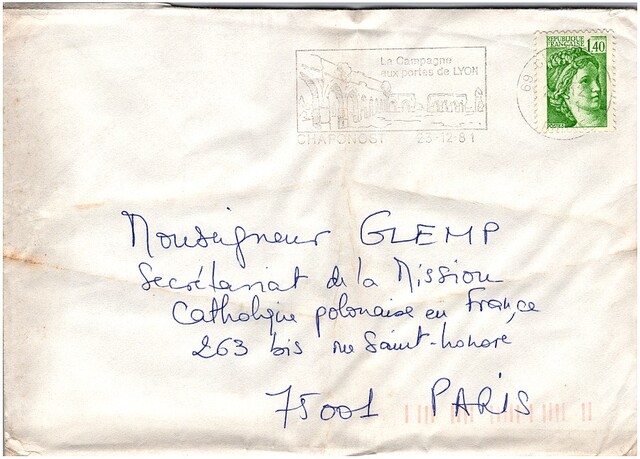 La Campagne
aux portes de LYON
CHAPONOST 23-12-81
69
REPUBLIQUE
FRANCAISE 1,40
Monseigneur GLEMP
Secrétariat de la Mission
Catholique polonaise en France
263 bis rue Saint-honoré
75001 PARIS